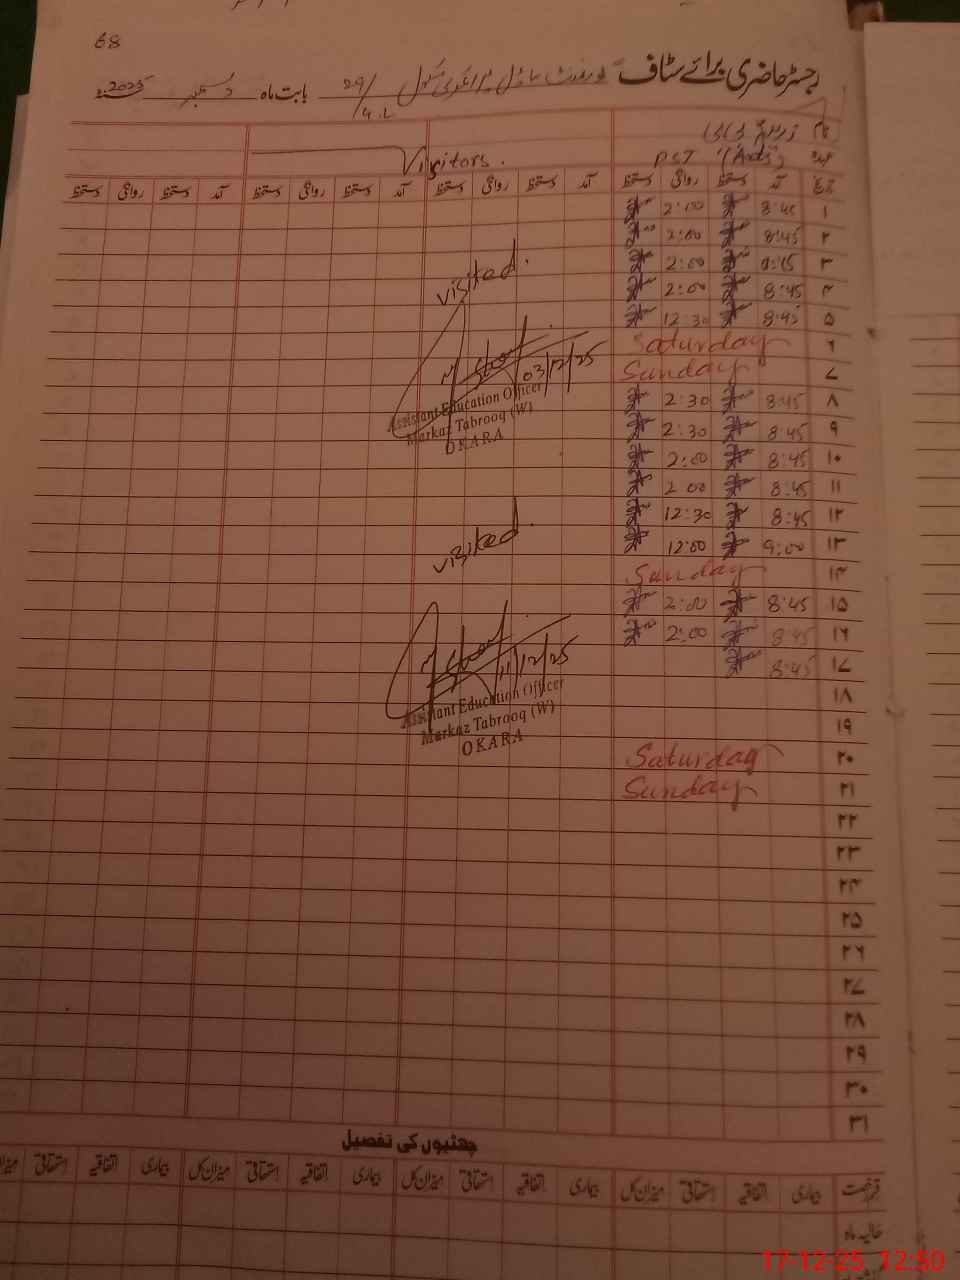 68
رجسٹر حاضری برائے سٹاف گورنمنٹ ماڈل پرائمری سکول 29/4.L بابت ماہ دسمبر 2025ء
نام
عہدہ PST (Arts) Visitors.
تاریخ آمد دستخط روانگی دستخط آمد دستخط روانگی دستخط آمد دستخط روانگی دستخط آمد دستخط روانگی دستخط
۱ 8:45 2:00
۲ 8:45 2:00
۳ 9:15 2:00
۴ 8:45 2:00
۵ 8:45 12:30
۶ Saturday
۷ Sunday
۸ 8:45 2:30
۹ 8:45 2:30
۱۰ 8:45 2:00
۱۱ 8:45 2:00
۱۲ 8:45 12:30
۱۳ 9:00 12:00
۱۴ Sunday
۱۵ 8:45 2:00
۱۶ 8:45 2:00
۱۷ 8:45
۱۸
۱۹
۲۰ Saturday
۲۱ Sunday
۲۲
۲۳
۲۴
۲۵
۲۶
۲۷
۲۸
۲۹
۳۰
۳۱
visited.
03/12/25
Assistant Education Officer
Markaz Tabrooq (W)
OKARA
visited.
11/12/25
Assistant Education Officer
Markaz Tabrooq (W)
OKARA
چھٹیوں کی تفصیل
قسم رخصت بیماری اتفاقیہ استحقاقی میزان کل بیماری اتفاقیہ استحقاقی میزان کل بیماری اتفاقیہ استحقاقی میزان کل بیماری اتفاقیہ استحقاقی میزان
حالیہ ماہ
17-12-25 12:50